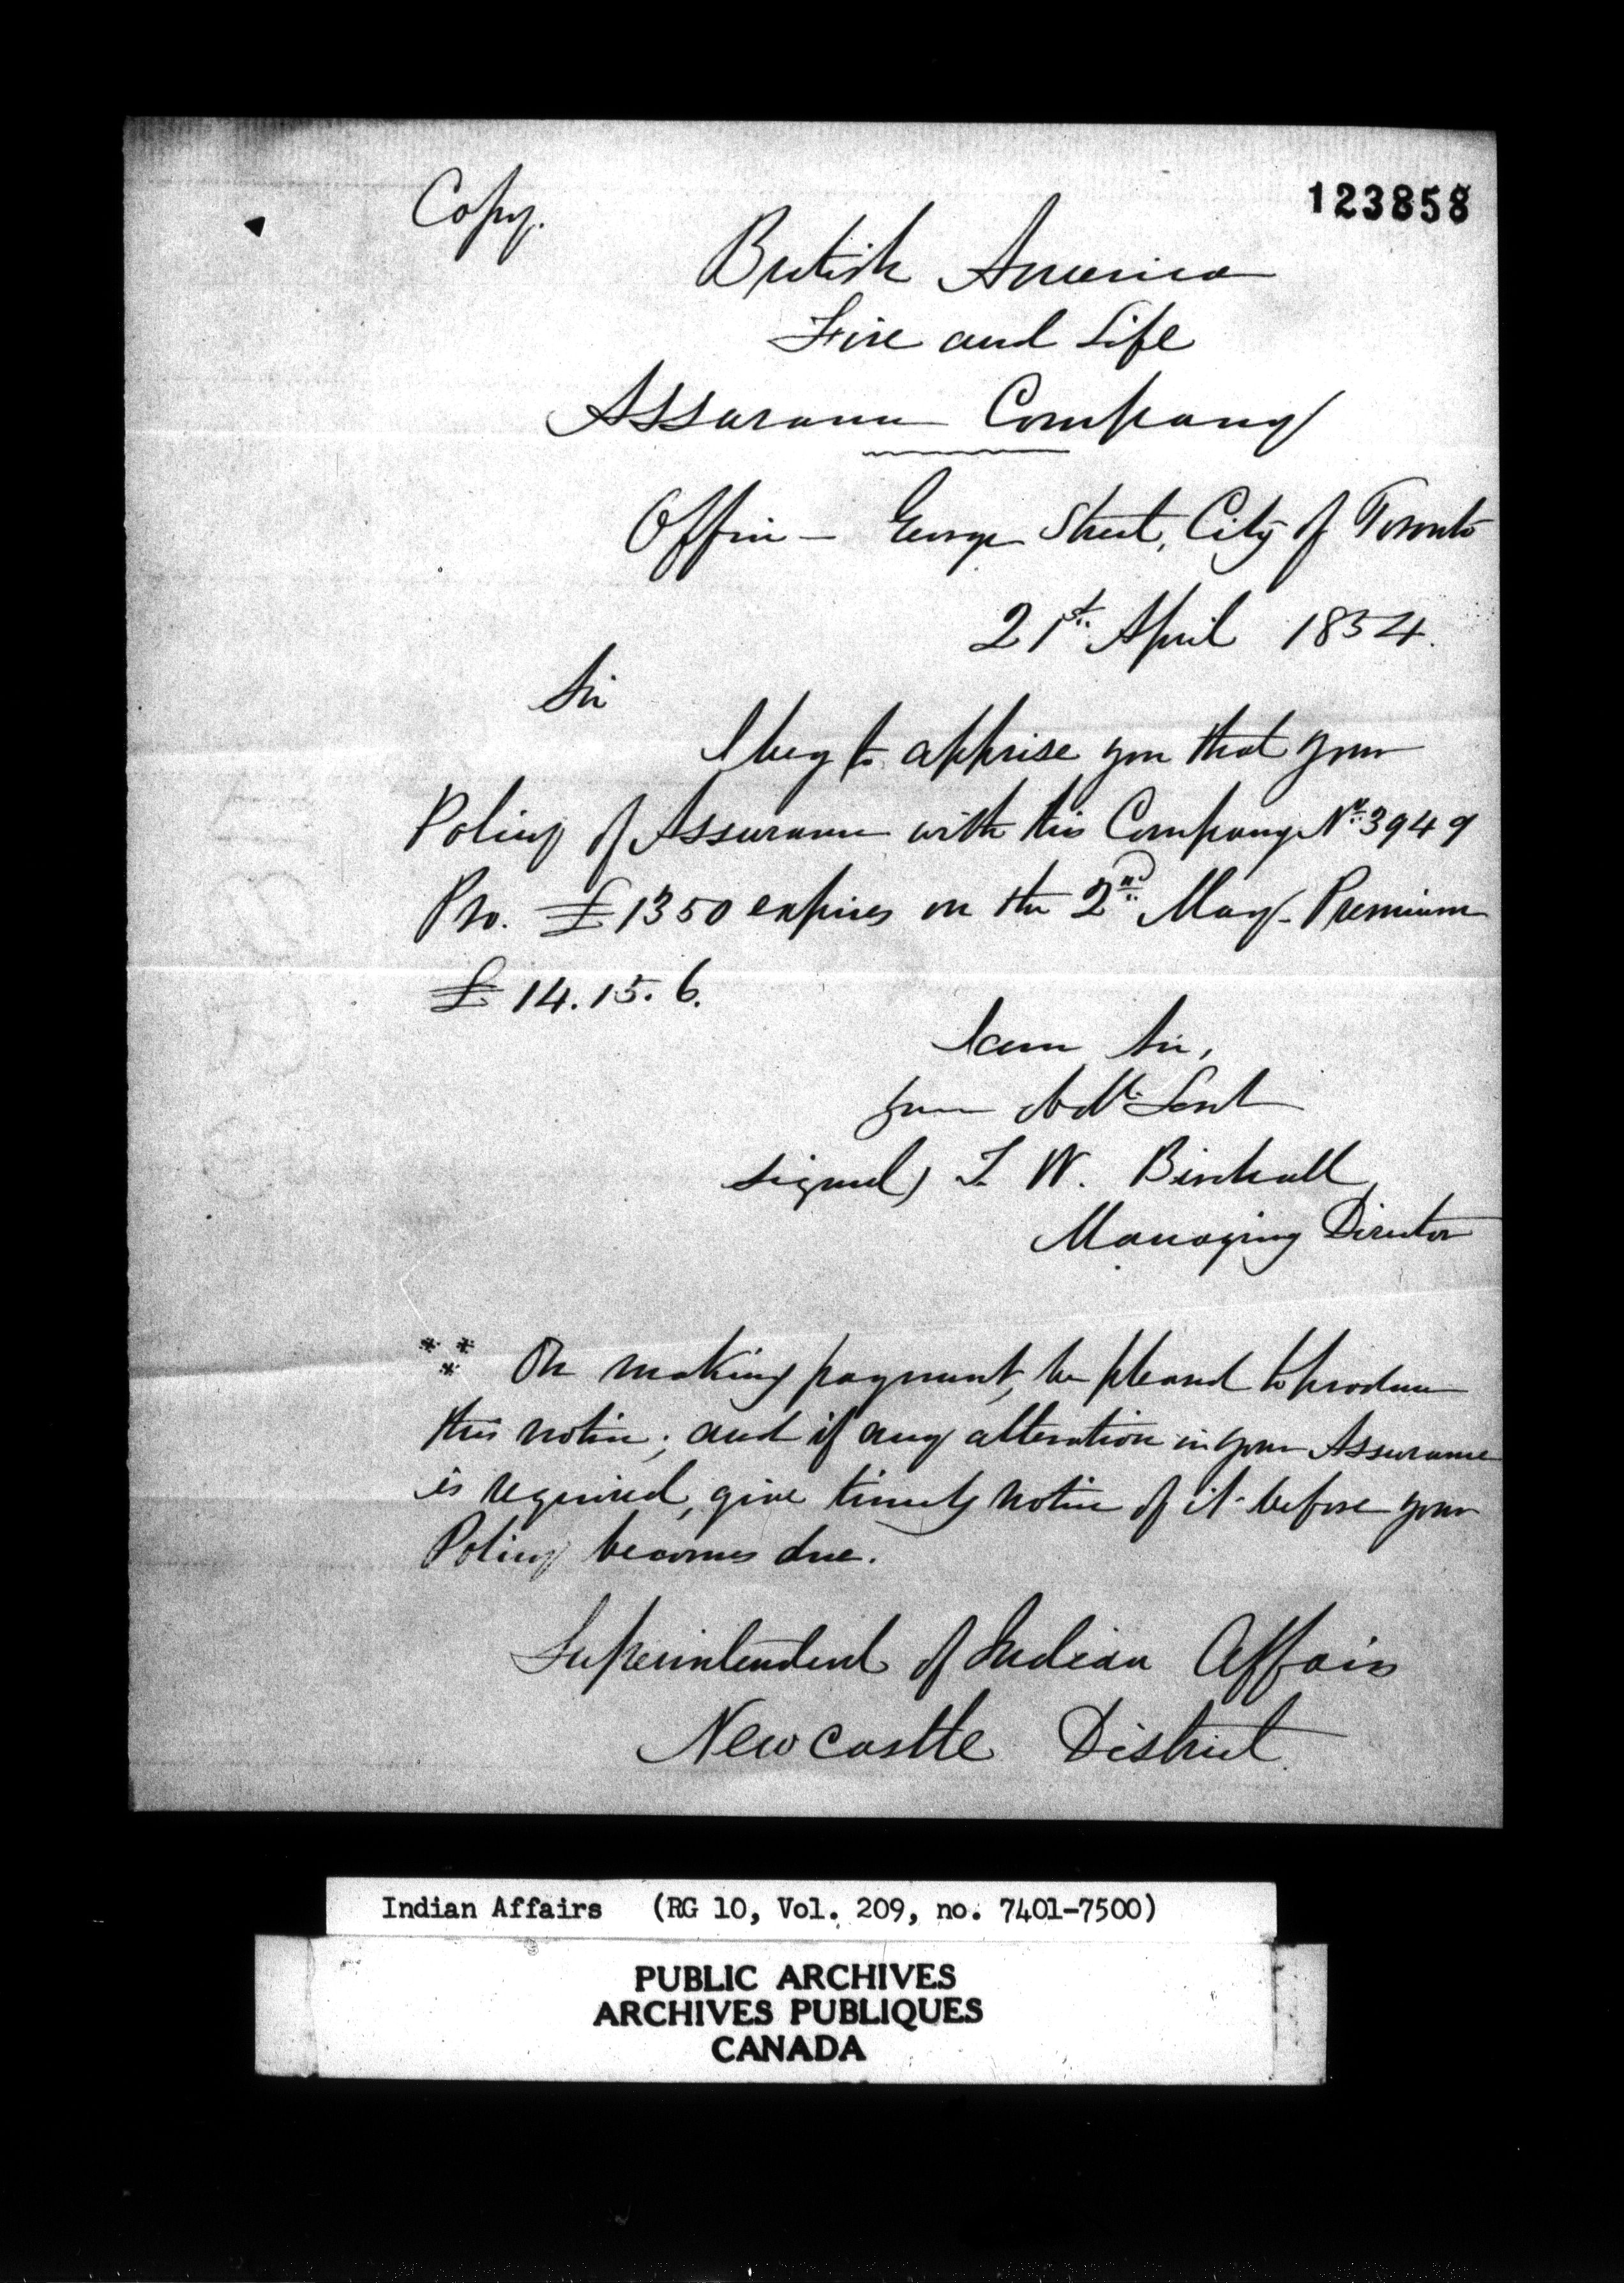 Copy.
123858
British America
Fire and Life
Assurance Company
Office — George Street, City of Toronto
21st April 1854.
Sir
I beg to apprise you that your
Policy of Assurance with this Company No. 3949
Pro. £1350 expires on the 2nd May - Premium
£14.15.6.
I am Sir,
your Obdt Servt
signed) T. W. Birchall
Managing Director
*** On making payment, be pleased to produce
this notice; and if any alteration in your Assurance
is required, give timely notice of it before your
Policy becomes due.
Superintendent of Indian Affairs
Newcastle District.
Indian Affairs (RG 10, Vol. 209, no. 7401-7500)
PUBLIC ARCHIVES
ARCHIVES PUBLIQUES
CANADA